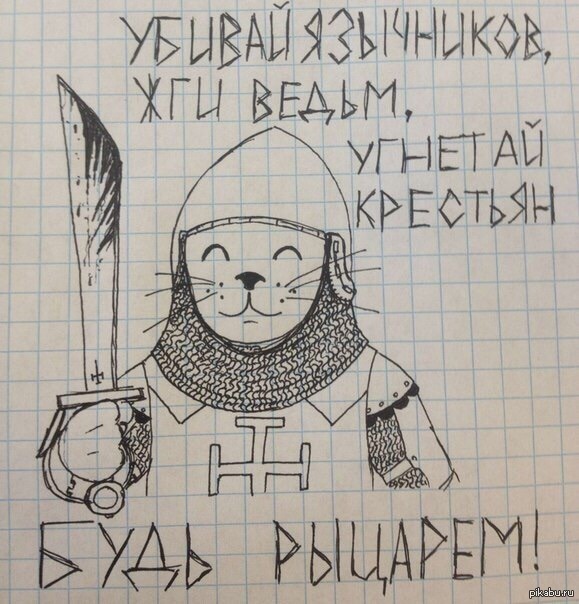 УБИВАЙ ЯЗЫЧНИКОВ,
ЖГИ ВЕДЬМ,
УГНЕТАЙ
КРЕСТЬЯН
БУДЬ РЫЦАРЕМ!
pikabu.ru